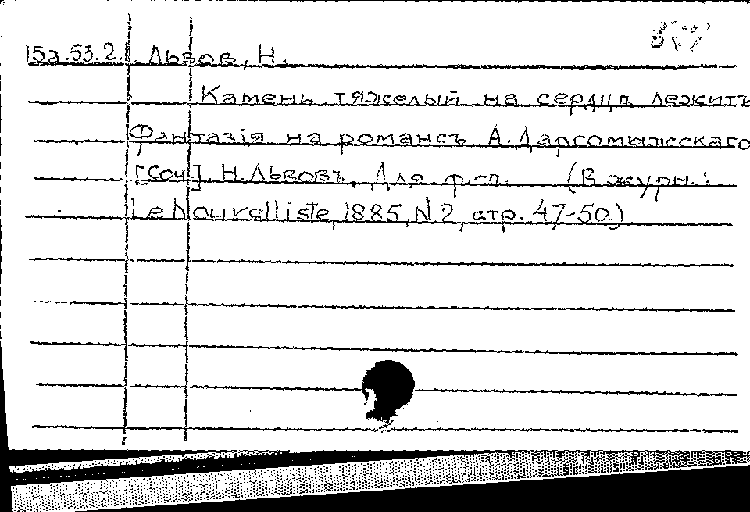 15a.53.2. Львов, Н.
Камень тяжелый на сердце лежитъ
Фантазія на романсъ А. Даргомыжскаго
[Соч]. Н. Львовъ, Для ф.-п. (В журн.:
Le Nouvelliste, 1885, N 2, стр. 47-50)